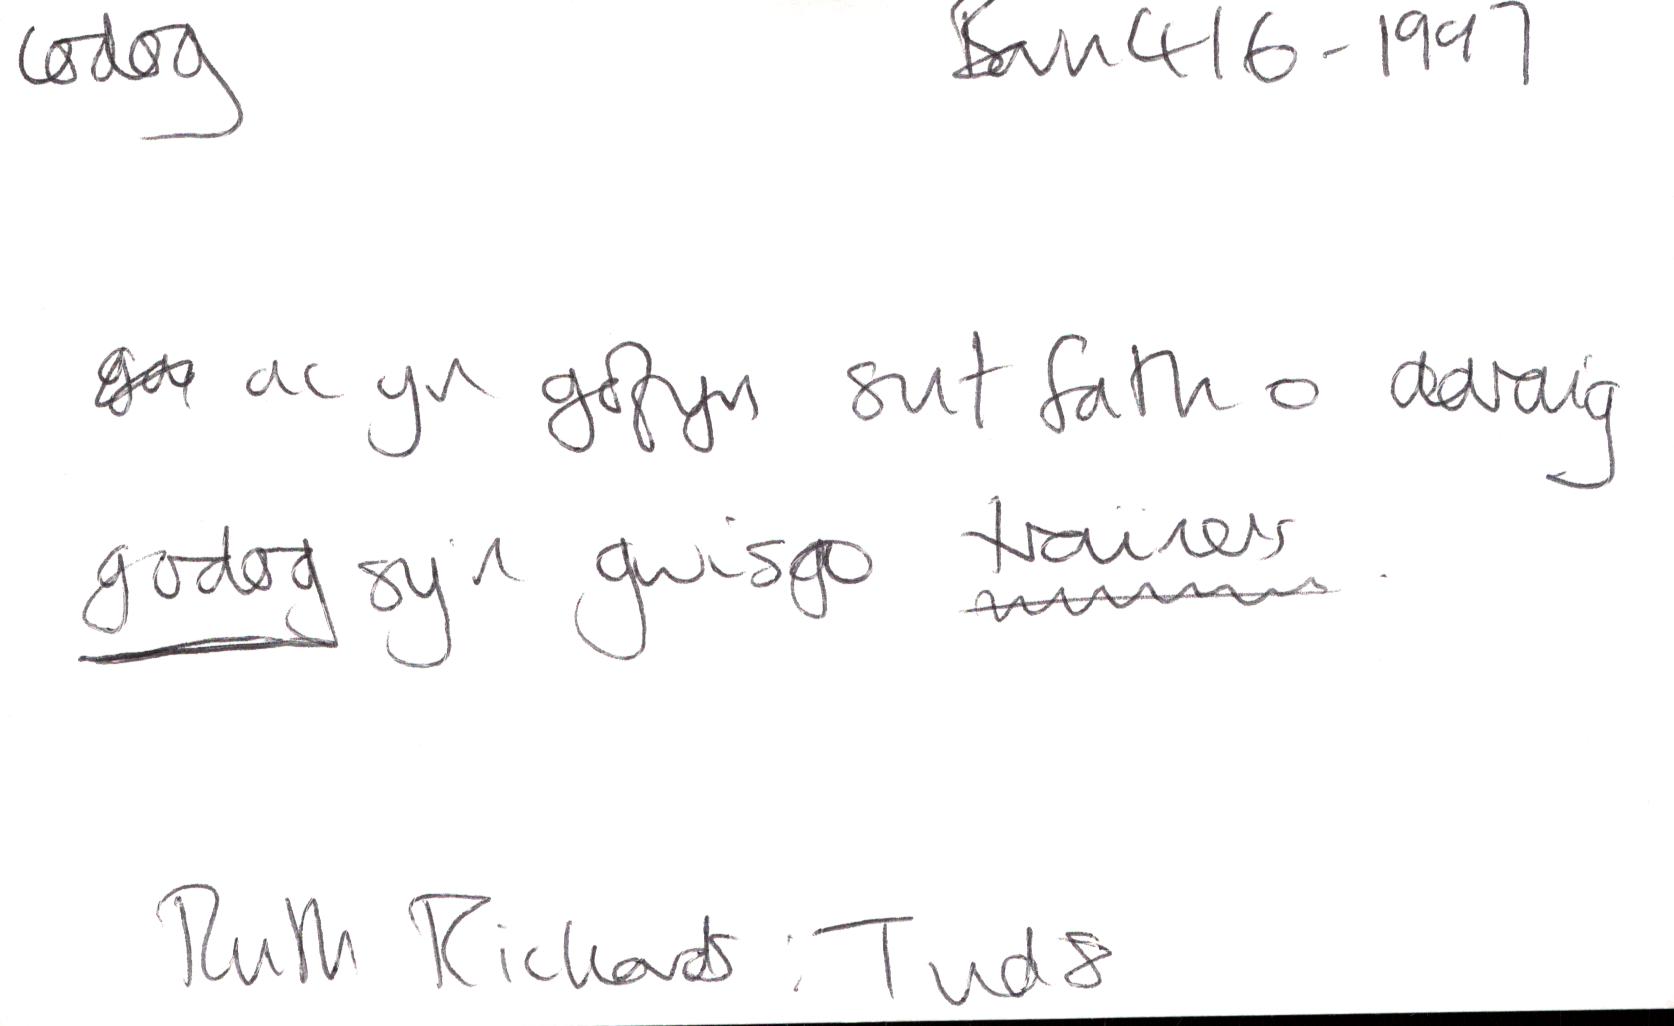 codog
Barn 416-1997
ac yn gofyn sut fath o ddraig
godog sy'n gwisgo trainers.
Ruth Richards: Tud 8